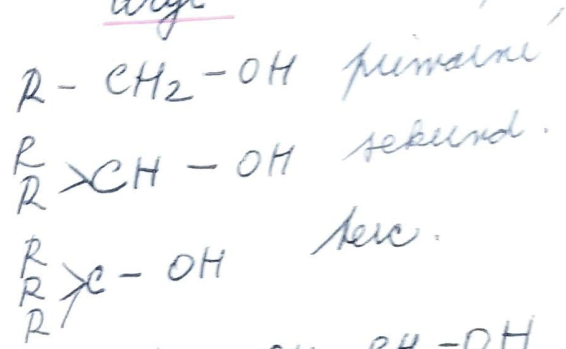 R - CH2 - OH primární
R
R >CH - OH sekund.
R
R >C - OH terc.
R
CH - OH